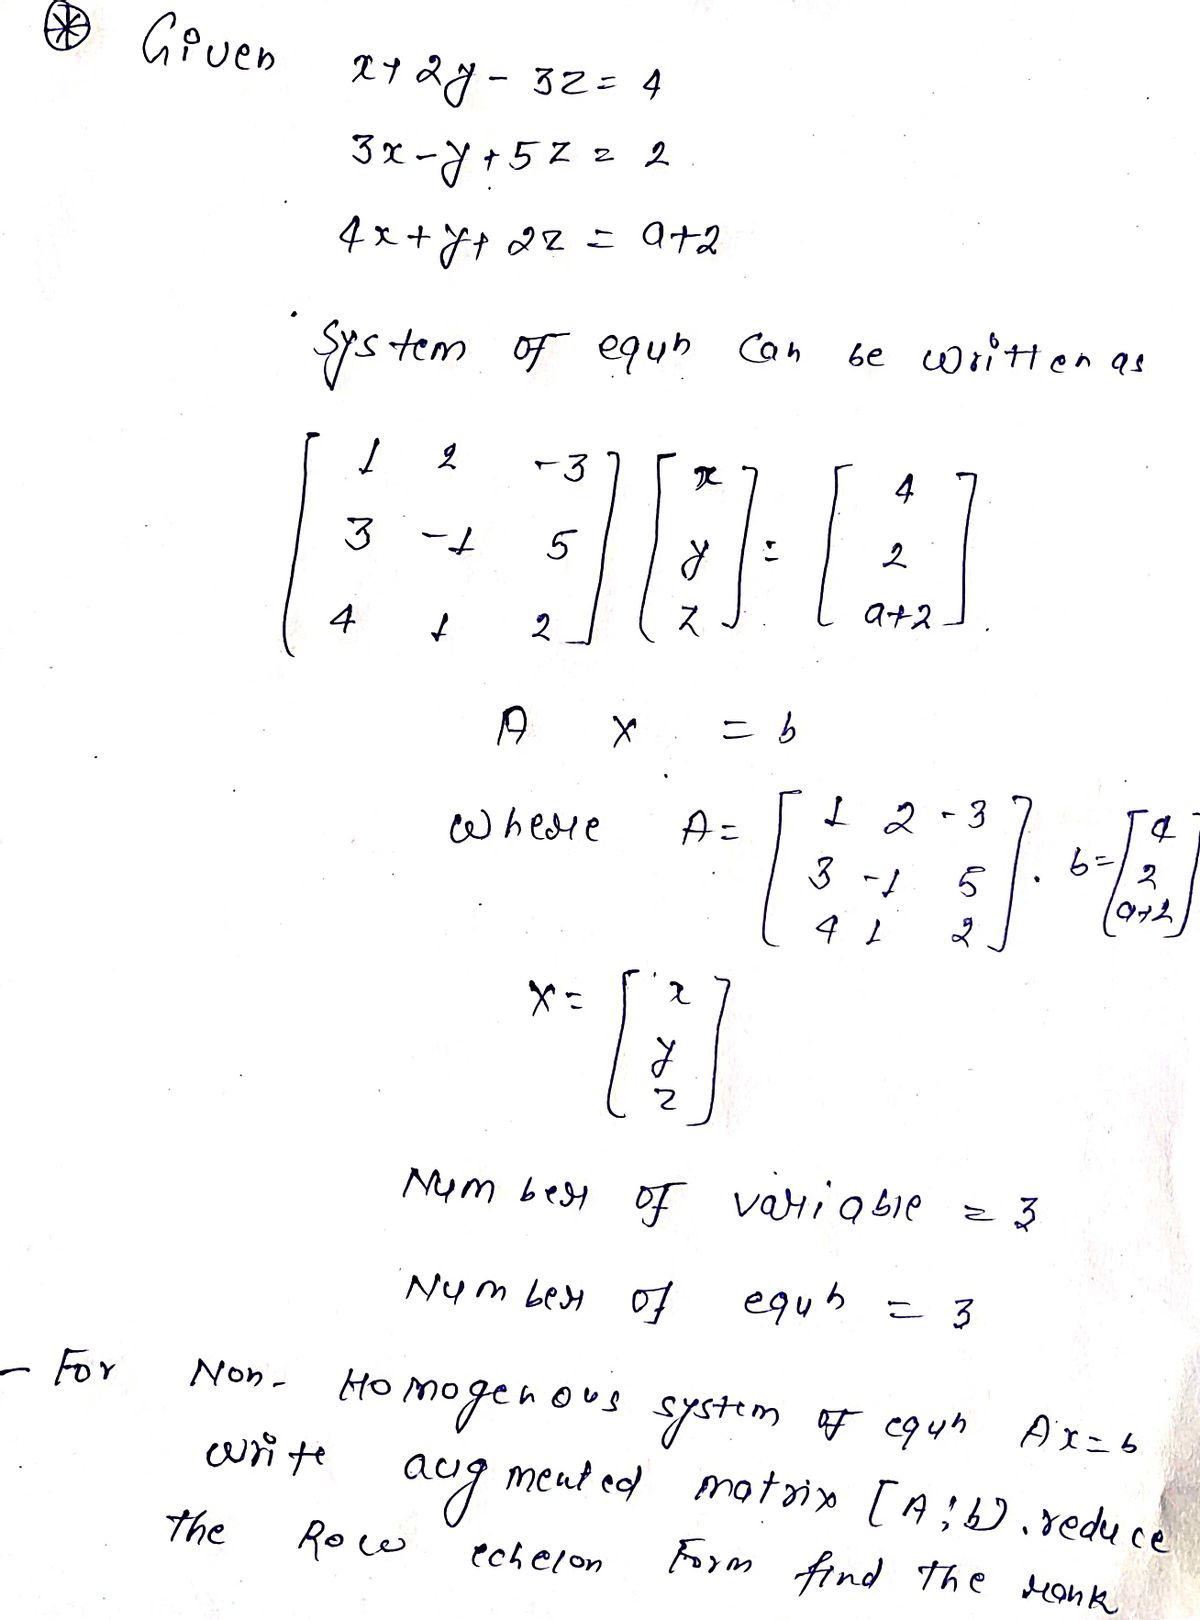 Given x+2y-3z=4
3x-y+5z=2
4x+y+2z=a+2
System of equn can be written as
[1 2 -3] [x] = [4]
[3 -1 5] [y] [2]
[4 1 2] [z] [a+2]
A X = b
where A= [1 2 -3]. b= [4]
[3 -1 5] [2]
[4 1 2] [a+2]
X= [x]
[y]
[z]
Number of variable = 3
Number of equn = 3
- For Non-Homogenous system of equn Ax=b
write augmented matrix [A:b]. reduce
the Row echelon Form find the rank